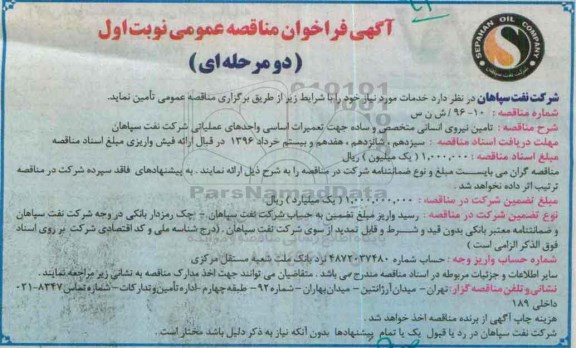 آگهی فراخوان مناقصه عمومی نوبت اول
(دو مرحله ای)
SEPAHAN OIL COMPANY
شرکت نفت سپاهان
شرکت نفت سپاهان در نظر دارد خدمات مورد نیاز خود را با شرایط زیر از طریق برگزاری مناقصه عمومی تأمین نماید.
شماره مناقصه : ۱۰-۹۶ / ش ن س
شرح مناقصه : تامین نیروی انسانی متخصص و ساده جهت تعمیرات اساسی واحدهای عملیاتی شرکت نفت سپاهان
مهلت دریافت اسناد مناقصه : سیزدهم ، شانزدهم ، هفدهم و بیستم خرداد ۱۳۹۶ در قبال ارائه فیش واریزی مبلغ اسناد مناقصه
مبلغ اسناد مناقصه : ۱,۰۰۰,۰۰۰ ( یک میلیون ) ریال
مناقصه گران می بایست مبلغ و نوع ضمانتنامه شرکت در مناقصه را به شرح ذیل ارائه نمایند . به پیشنهادهای فاقد سپرده شرکت در مناقصه
ترتیب اثر داده نخواهد شد .
مبلغ تضمین شرکت در مناقصه : ۱,۰۰۰,۰۰۰,۰۰۰ ( یک میلیارد ) ریال
نوع تضمین شرکت در مناقصه : رسید واریز مبلغ تضمین به حساب شرکت نفت سپاهان - چک رمزدار بانکی در وجه شرکت نفت سپاهان
و ضمانتنامه معتبر بانکی بدون قید و شرط و قابل تمدید از سوی شرکت نفت سپاهان . (درج شناسه ملی و کد اقتصادی شرکت بر روی اسناد
فوق الذکر الزامی است )
شماره حساب واریز وجه : حساب شماره ۴۸۷۲۰۳۷۴۸۰ نزد بانک ملت شعبه مستقل مرکزی
سایر اطلاعات و جزئیات مربوطه در اسناد مناقصه مندرج می باشد . متقاضیان می توانند جهت اخذ مدارک مناقصه به نشانی زیر مراجعه نمایند.
نشانی و تلفن مناقصه گزار : تهران - میدان آرژانتین - میدان بهاران - شماره ۹۲ - طبقه چهارم - اداره تأمین و تدارکات - شماره تماس ۸۳۴۷-۰۲۱
داخلی ۱۸۹
هزینه چاپ آگهی از برنده مناقصه اخذ خواهد شد .
شرکت نفت سپاهان در رد یا قبول یک یا تمام پیشنهادها بدون آنکه نیاز به ذکر دلیل باشد مختار است .
ParsNamadData